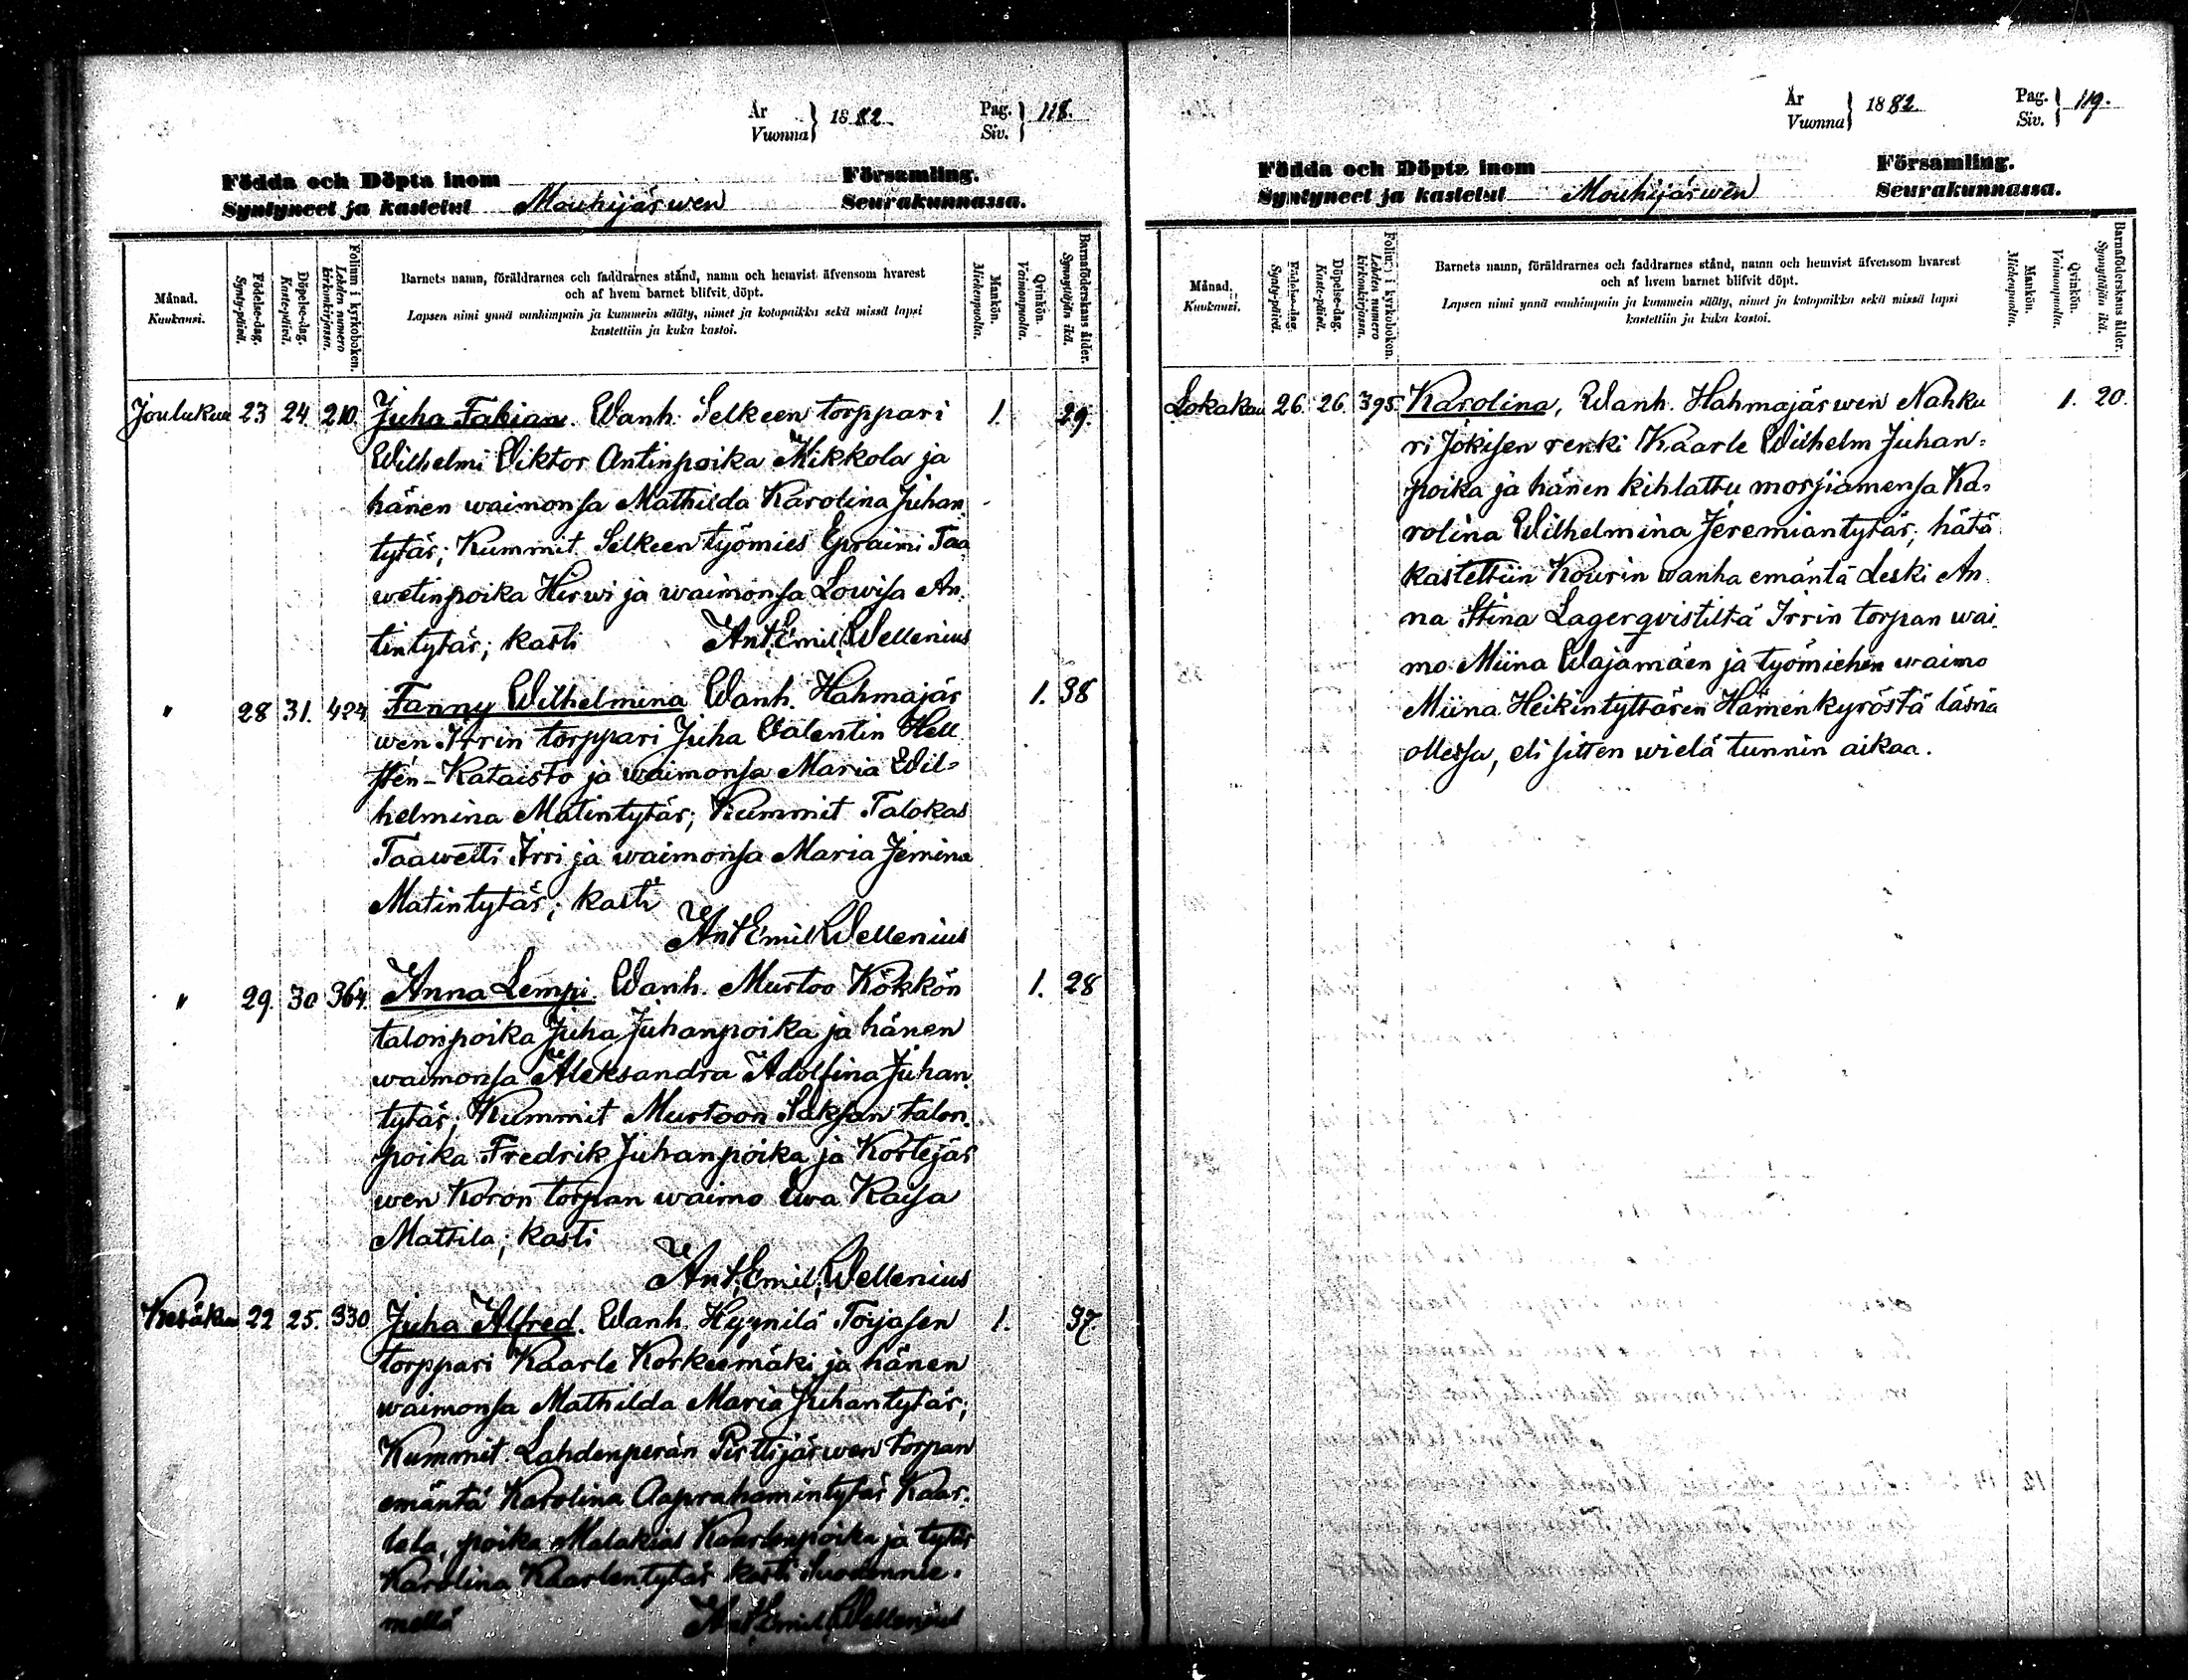 År
Vuonna } 1882. Pag.
Siv. } 118.
Födda och Döpta inom Församling.
Syntyneet ja kastetut Mouhijärwen Seurakunnassa.
Månad.
Kuukausi.
Födelse-dag.
Synty-päivä.
Döpelse-dag.
Kaste-päivä.
Folium i kyrkoboken.
Lehden numero
kirkonkirjassa.
Barnets namn, föräldrarnes och faddrarnes stånd, namn och hemvist äfvensom hvarest
och af hvem barnet blifvit döpt.
Lapsen nimi ynnä vanhimpain ja kummein sääty, nimet ja kotopaikka sekä missä lapsi
kastettiin ja kuka kastoi.
Mankön.
Miehenpuolta.
Qvinkön.
Vaimonpuolta.
Barnaföderskans ålder.
Synnyttäjän ikä.
Joulukuu 23 24 210. Juha Fabian. Wanh. Selkeen torppari 1. 29.
Wilhelmi Viktor Antinpoika Mikkola ja
hänen waimonsa Mathilda Karolina Juhan
tytär; Kummit Selkeen työmies Epraimi Taa
wetinpoika Hirwi ja waimonsa Lowisa An.
tintytär; kasti Ant. Emil. Wellenius
" 28 31. 424 Fanny Wilhelmina Wanh. Hahmajär 1. 38
wen Irrin torppari Juha Valentin Hell
stén-Kataisto ja waimonsa Maria Wil=
helmina Matintytär; Kummit Talokas
Taawetti Irri ja waimonsa Maria Jemina
Matintytär; kasti
Ant Emil Wellenius
" 29. 30 364. Anna Lempi. Wanh. Murtoo Kökkön 1. 28
talonpoika Juha Juhanpoika ja hänen
waimonsa Aleksandra Adolfina Juhan.
tytär; Kummit Murtoon Saksan talon.
poika Fredrik Juhanpoika ja Kortejär
wen Koron torpan waimo Ewa Kaisa
Mattila; kasti
Ant. Emil. Wellenius
Kesäkuu 22 25. 330 Juha Alfred. Wanh. Hyynilä Toijasen 1. 37.
torppari Kaarle Korkeemäki ja hänen
waimonsa Mathilda Maria Juhantytär;
Kummit Lahdenperän Pirttijärwen torpan
emäntä Karolina Aaprahamintytär Kaar.
lela, poika Malakias Kaarlenpoika ja tytär
Karolina Kaarlentytär kasti Suodennie.
mellä Ant. Emil. Wellenius
År
Vuonna } 1882 Pag.
Siv. } 119.
Födda och Döpta inom Församling.
Syntyneet ja kastetut Mouhijärwen Seurakunnassa.
Månad.
Kuukausi.
Födelse-dag.
Synty-päivä.
Döpelse-dag.
Kaste-päivä.
Folium i kyrkoboken.
Lehden numero
kirkonkirjassa.
Barnets namn, föräldrarnes och faddrarnes stånd, namn och hemvist äfvensom hvarest
och af hvem barnet blifvit döpt.
Lapsen nimi ynnä vanhimpain ja kummein sääty, nimet ja kotopaikka sekä missä lapsi
kastettiin ja kuka kastoi.
Mankön.
Miehenpuolta.
Qvinkön.
Vaimonpuolta.
Barnaföderskans ålder.
Synnyttäjän ikä.
Lokakuu 26. 26. 395. Karolina, Wanh. Hahmajärwen Nahku 1. 20.
ri Jokisen renki Kaarle Wilhelm Juhan=
poika ja hänen kihlattu morsiamensa Ka=
rolina Wilhelmina Jeremiantytär; hätä
kastettiin Kourin wanha emäntä Leski An
na Stina Lagerqvistiltä Irrin torpan wai
mo Miina Wajamäen ja työmiehen waimo
Miina Heikintyttären Hämenkyröstä läsnä
ollessa, eli sitten wielä tunnin aikaa.